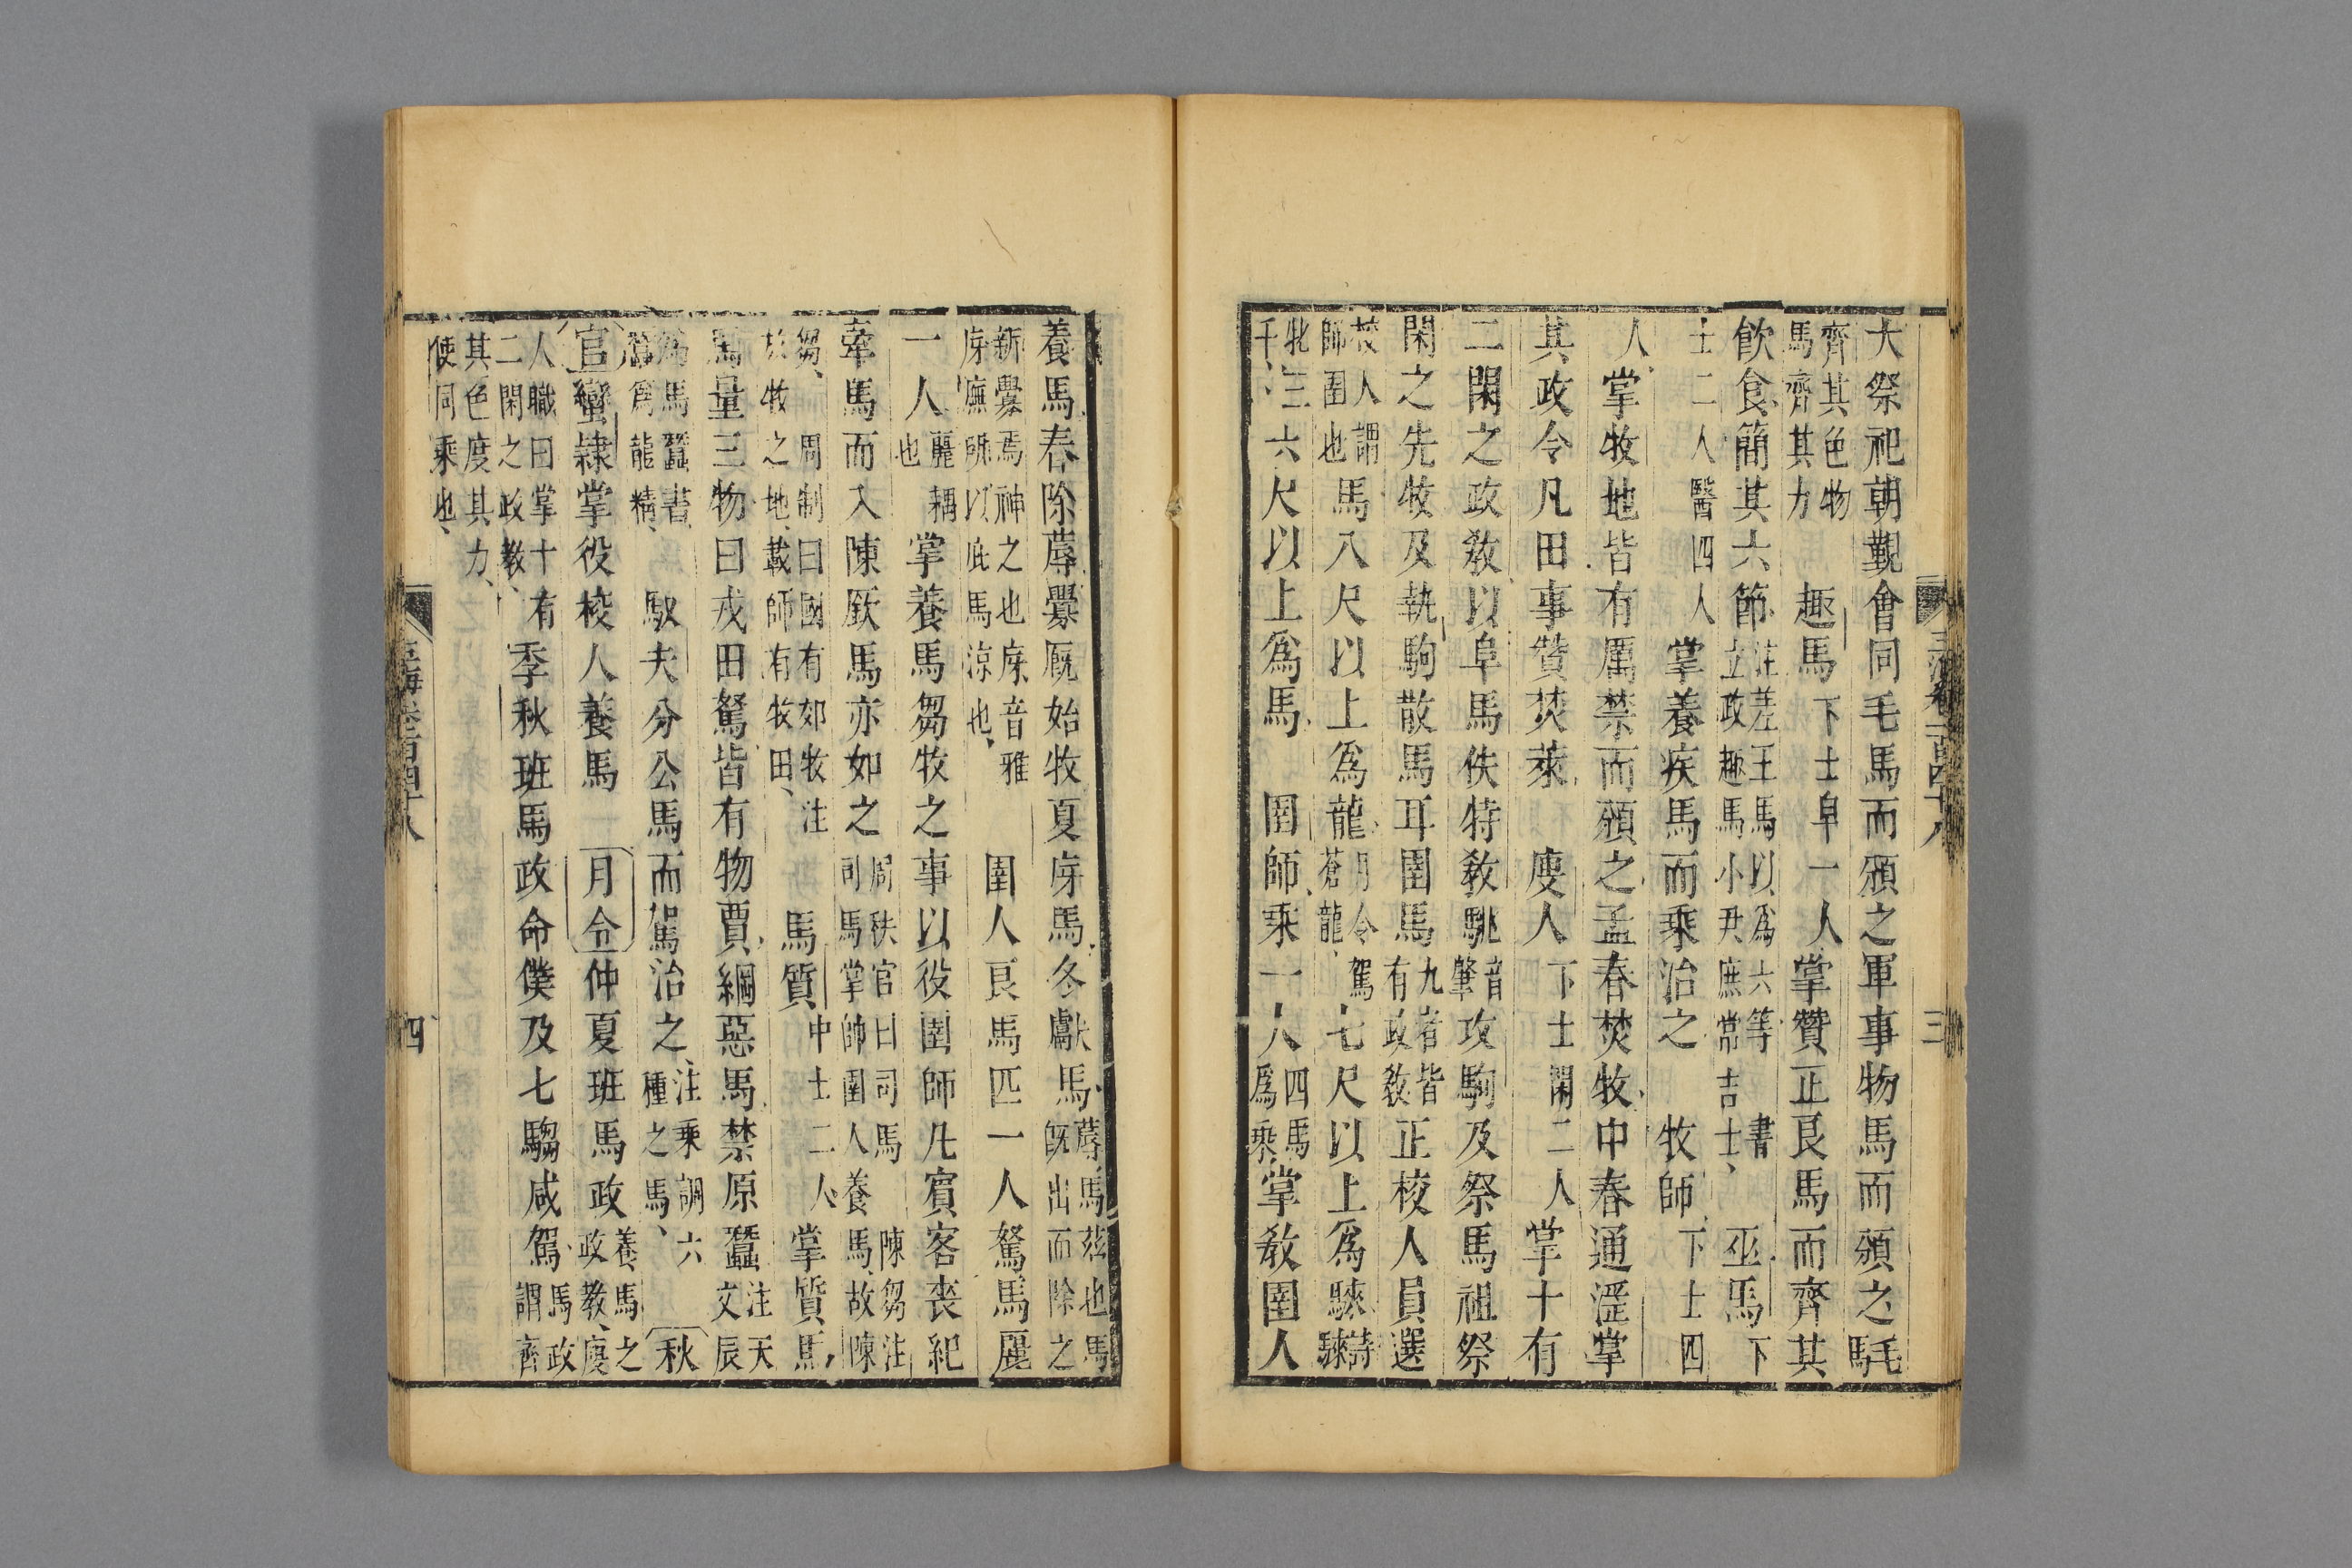 大祭祀朝覲會同毛馬而頒之軍事物馬而頒之毛馬
齊其色物馬齊其力趣馬下士皁一人掌贊正良馬而齊其
飲食簡其六節注差王馬以爲六等書立政趣馬小尹庶常吉士巫馬下
士二人醫四人掌養疾馬而乘治之牧師下士四
人掌牧地皆有厲禁而頒之孟春焚牧中春通淫掌
其政令凡田事贊焚萊廋人下士閑二人掌十有
二閑之政敎以阜馬佚特敎駣音肇攻駒及祭馬祖祭
閑之先牧及執駒散馬耳圉馬九者皆有政敎正校人員選
校人謂師圉也馬八尺以上爲龍月令駕蒼龍七尺以上爲騋詩騋
牝三千六尺以上爲馬圉師乘一人四馬爲乘掌敎圉人
養馬春除蓐釁廐始牧夏庌馬冬獻馬蓐馬茲也馬旣出而除之
新釁焉神之也庌音雅庌廡所以庇馬涼也圉人良馬匹一人駑馬麗
一人麗耦也掌養馬芻牧之事以役圉師凡賓客喪紀
牽馬而入陳廞馬亦如之周秩官曰司馬陳芻注司馬掌帥圉人養馬故陳
芻周制曰國有郊牧注放牧之地載師有牧田馬質中士二人掌質馬
馬量三物曰戎田駑皆有物賈綱惡馬禁原蠶注天文辰
爲馬蠶書蠶爲龍精馭夫分公馬而駕治之注乘調六種之馬秋
官蠻隷掌役校人養馬月令仲夏班馬政養馬之政教廋
人職曰掌十有二閑之政敎季秋班馬政命僕及七騶咸駕馬政謂齊
其色度其力使同乘也